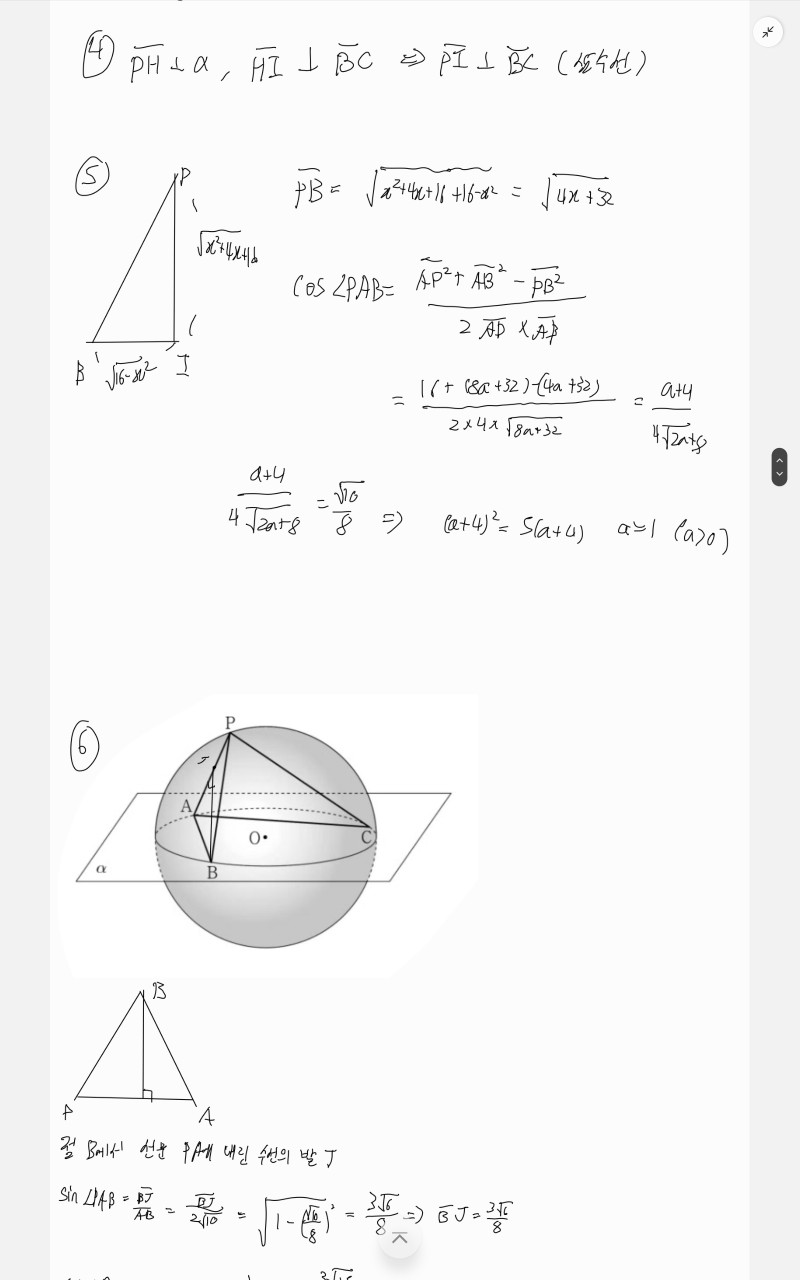 ④ PH ⊥ α, HI ⊥ BC ⇒ PI ⊥ BC (삼수선)
⑤
P
√x²+4x+16
B √16-x² I
PB = √x²+4x+16+16-x² = √4x+32
cos∠PAB = AP²+AB²-PB² / 2AP×AB
= 16+(8a+32)-(4a+32) / 2×4×√8a+32 = a+4 / 4√2a+8
a+4 / 4√2a+8 = √10 / 8 ⇒ (a+4)² = 5(a+4) a=1 (a>0)
⑥
P
J
A
O
C
B
α
B
P
A
점 B에서 선분 PA에 내린 수선의 발 J
sin∠PAB = BJ/AB = BJ/2√10 = √1-(√10/8)² = 3√6/8 ⇒ BJ = 3√6/8